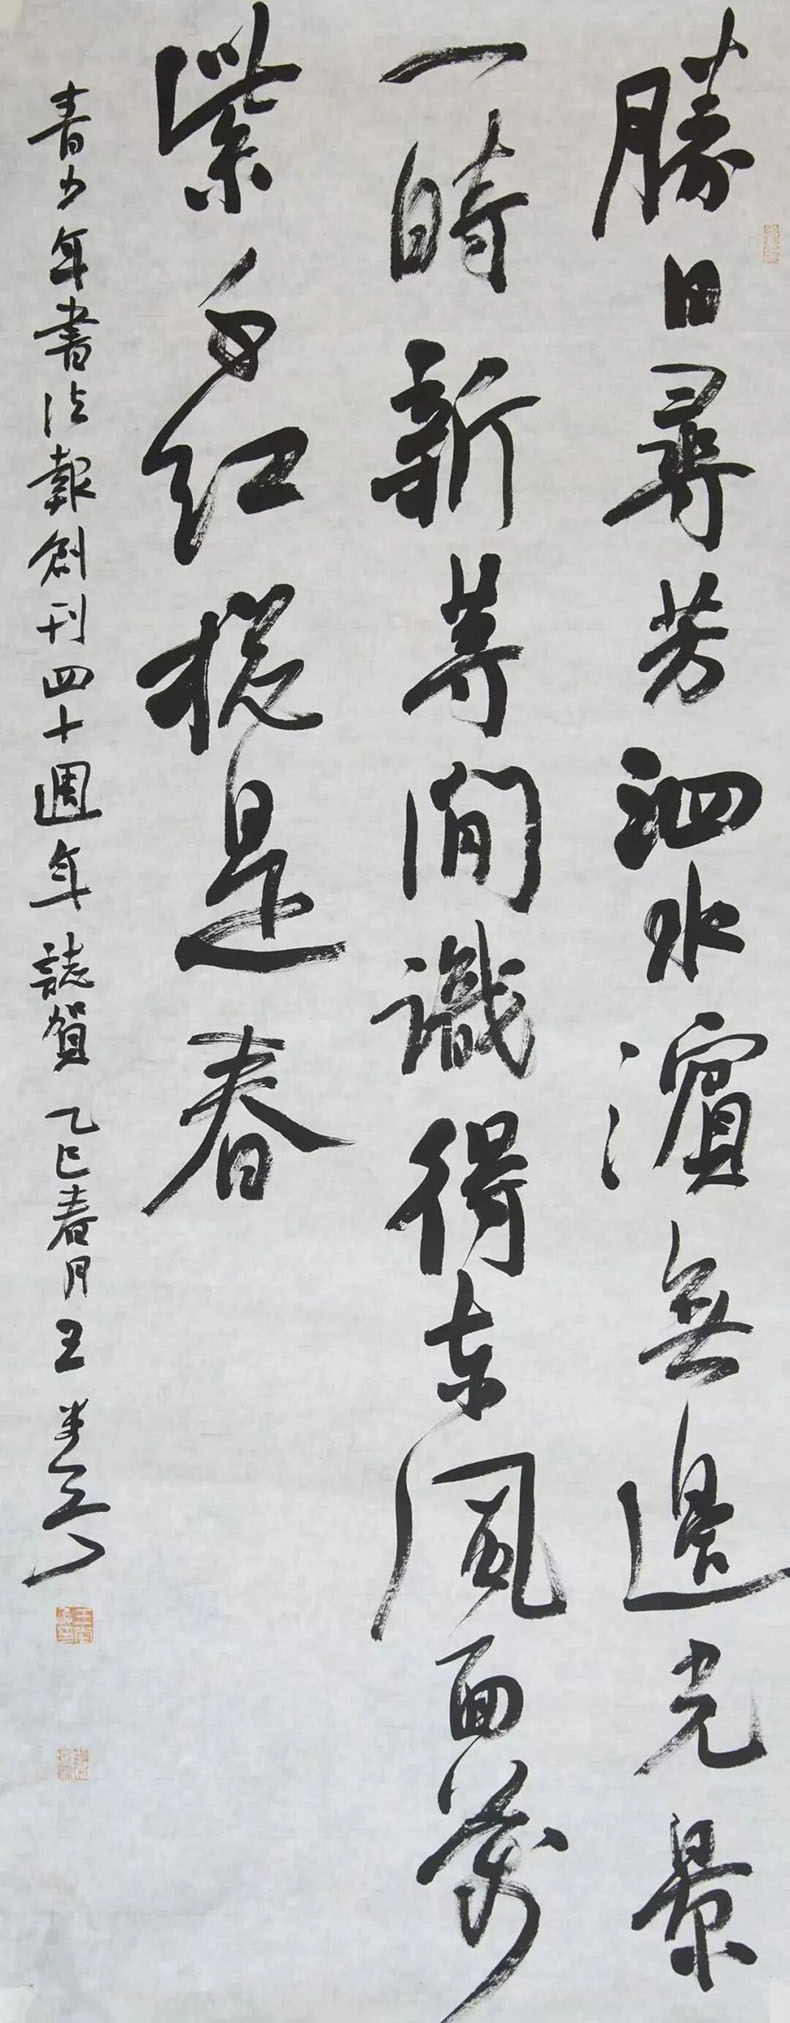 勝日尋芳泗水濱無邊光景
一時新等閒識得東風面萬
紫千红總是春
青少年書法報創刊四十週年誌賀乙巳春月王